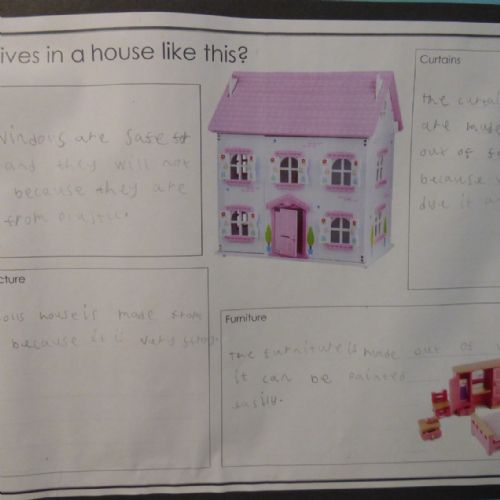 ives in a house like this?
windors are safe
and they will not
because they are
from plastic.
Curtains
the curta
are made
out of f
because
dye it a
cture
house is made from
because it is very strong
Furniture
The furniture is made out of
it can be painted
easily.